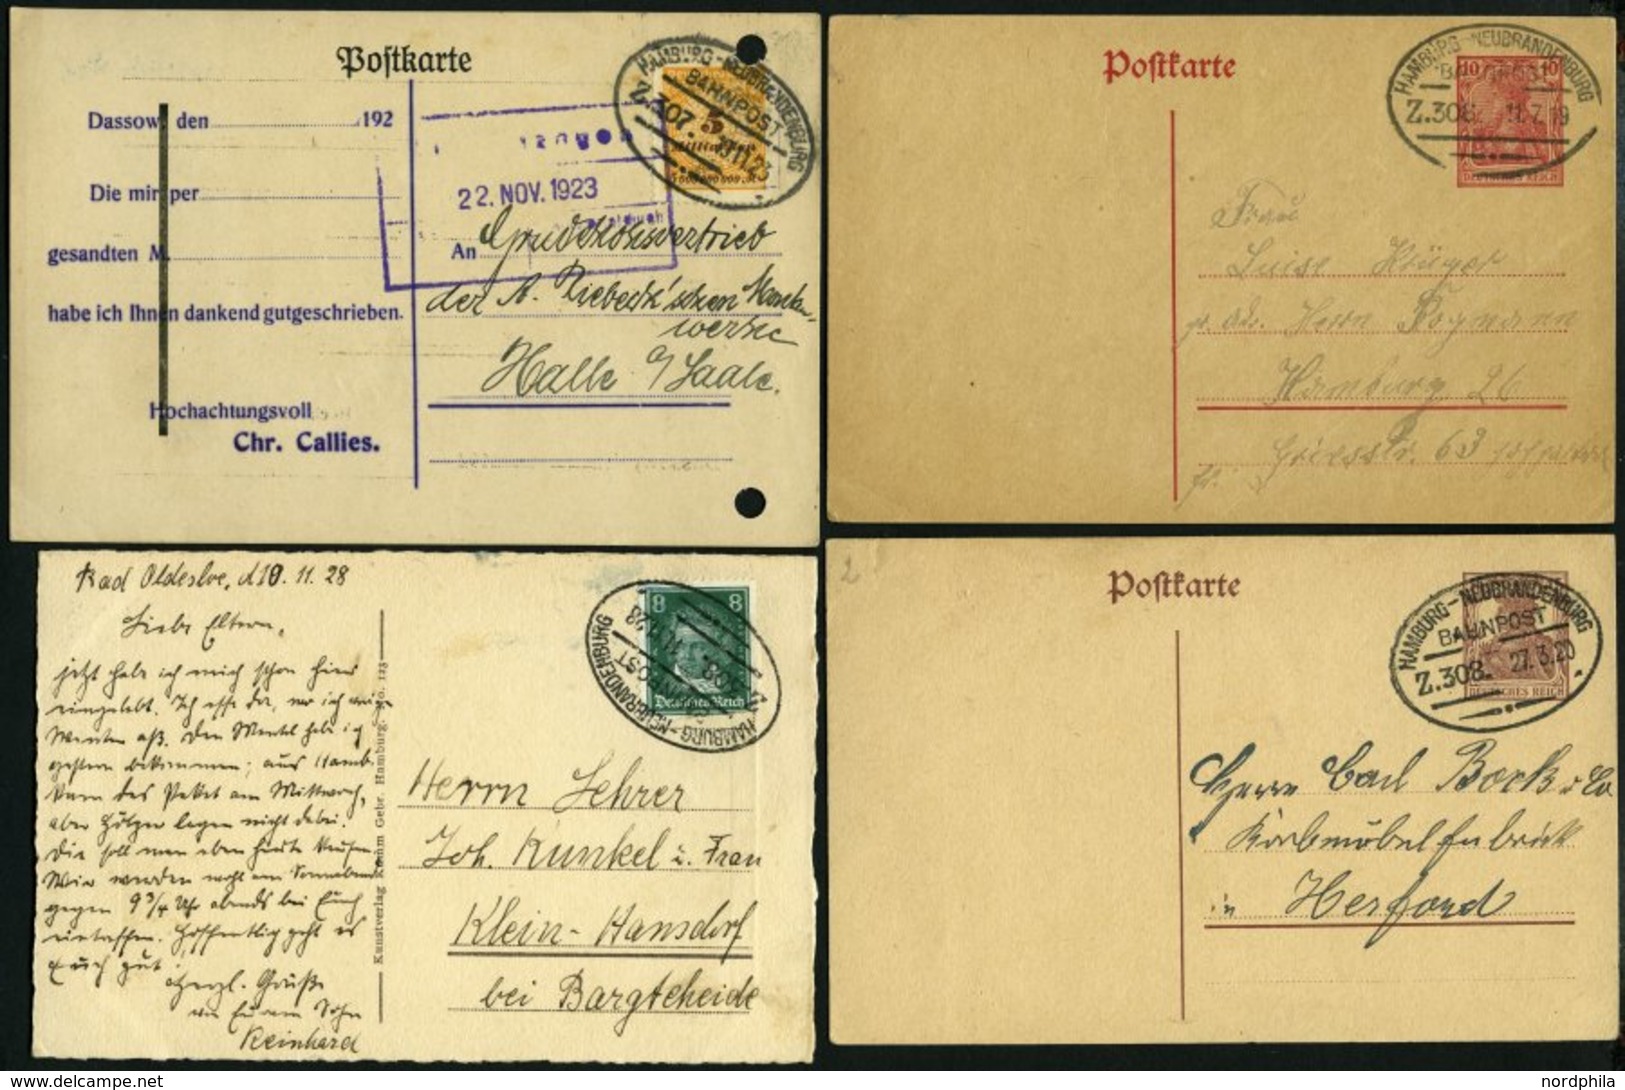 Postkarte
Dassow, den 192
Die mir per
gesandten M.
habe ich Ihnen dankend gutgeschrieben.
Hochachtungsvoll
Chr. Callies.
HAMBURG-NEUBRANDENBURG
BAHNPOST
Z.307. 19.11.23
5
22. NOV. 1923
An Grudekoksvertrieb
der A. Riebeck'schen Montan-
werke
Halle a/Saale.
Postkarte
10 10
DEUTSCHES REICH
HAMBURG-NEUBRANDENBURG
BAHNPOST
Z.308. 11.7.19
Frau
Luise Krüger
Hamburg 26
Bad Oldesloe, d. 10. 11. 28
Liebe Eltern,
jetzt habe ich mich schon hier
eingelebt. Ich esse da, wo
aß. Den Mantel habe ich
gestern bekommen; aus Hamb.
kam das Paket am Mittwoch,
aber lagen nicht dabei.
Die soll man eben heute
Wir werden wohl am Sonnabend
gegen 9 3/4 Uhr abends bei Euch
eintreffen. Hoffentlich geht es
Euch gut.
Herzl. Grüße
von Eurem Sohn
Reinhard
Kunstverlag Gebr. Hamburg. No. 123
8 8
Deutsches Reich
HAMBURG-NEUBRANDENBURG
BAHNPOST
Herrn Lehrer
Joh. Kunkel u. Frau
Klein-Hansdorf
bei Bargteheide
2
Postkarte
DEUTSCHES REICH
HAMBURG-NEUBRANDENBURG
BAHNPOST
Z.308. 27.3.20
Herrn Carl Bock & Co
Korbmöbelfabrik
in Herford
nordphila.com